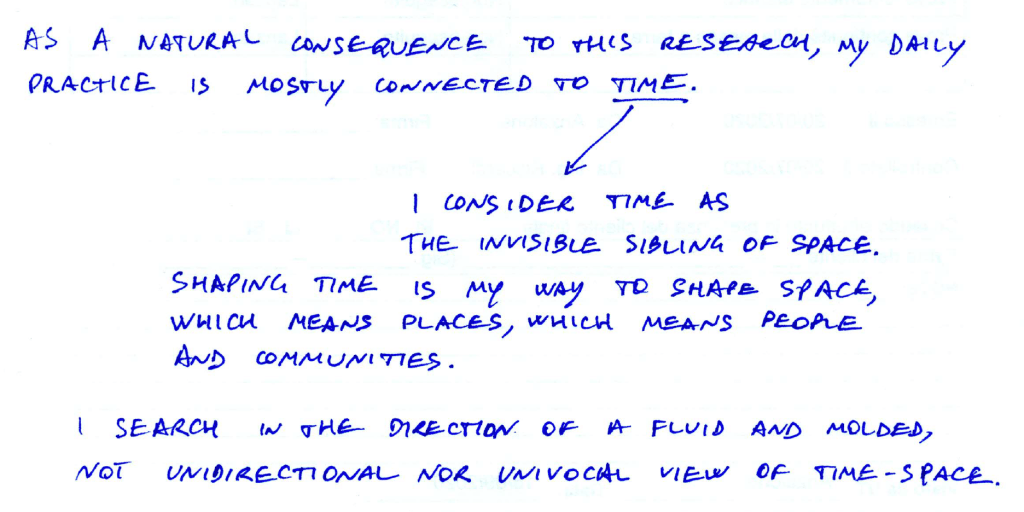 AS A NATURAL CONSEQUENCE TO THIS RESEARCH, MY DAILY
PRACTICE IS MOSTLY CONNECTED TO TIME.
I CONSIDER TIME AS
THE INVISIBLE SIBLING OF SPACE.
SHAPING TIME IS MY WAY TO SHAPE SPACE,
WHICH MEANS PLACES, WHICH MEANS PEOPLE
AND COMMUNITIES.
I SEARCH IN THE DIRECTION OF A FLUID AND MOLDED,
NOT UNIDIRECTIONAL NOR UNIVOCAL VIEW OF TIME-SPACE.